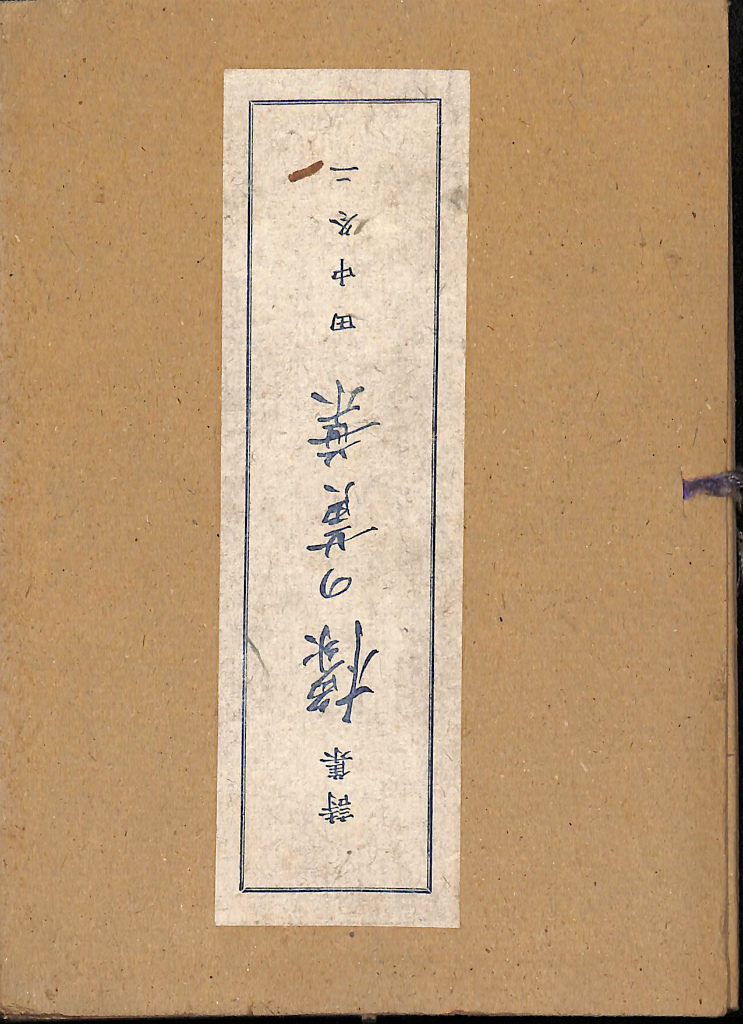 詩集 橡の黄葉 田中冬二